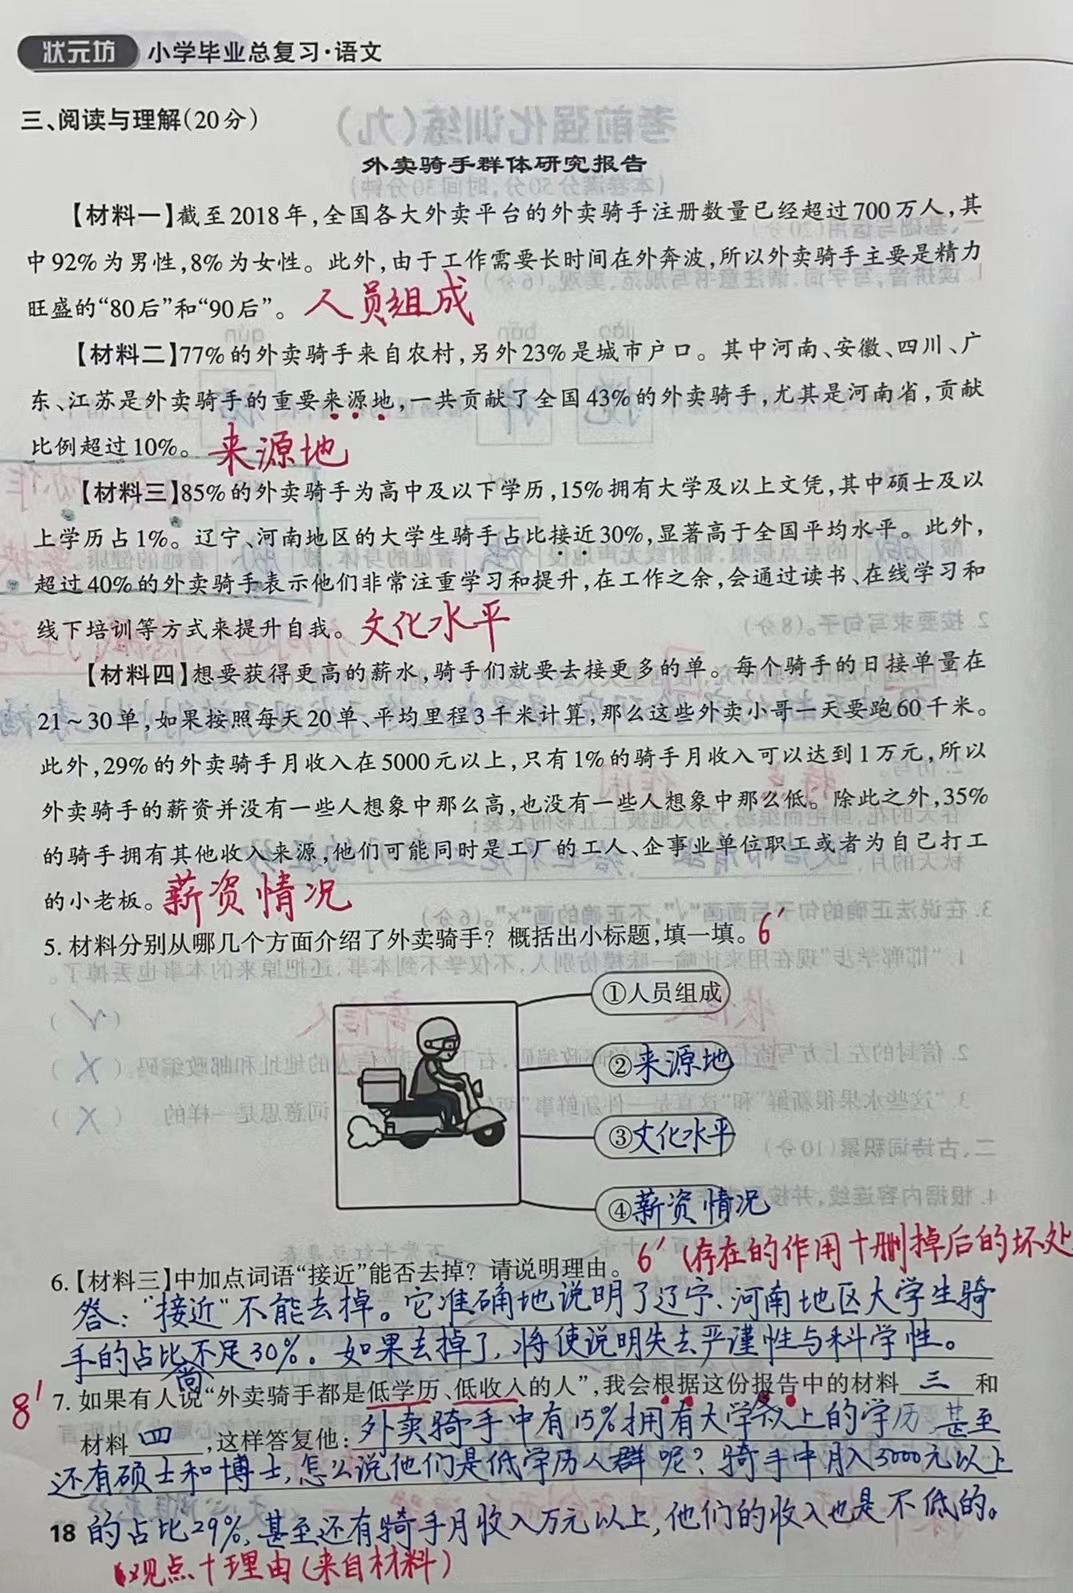 状元坊 小学毕业总复习·语文
三、阅读与理解(20分)
外卖骑手群体研究报告
【材料一】截至2018年,全国各大外卖平台的外卖骑手注册数量已经超过700万人,其
中92%为男性,8%为女性。此外,由于工作需要长时间在外奔波,所以外卖骑手主要是精力
旺盛的“80后”和“90后”。 人员组成
【材料二】77%的外卖骑手来自农村,另外23%是城市户口。其中河南、安徽、四川、广
东、江苏是外卖骑手的重要来源地,一共贡献了全国43%的外卖骑手,尤其是河南省,贡献
比例超过10%。 来源地
【材料三】85%的外卖骑手为高中及以下学历,15%拥有大学及以上文凭,其中硕士及以
上学历占1%。辽宁、河南地区的大学生骑手占比接近30%,显著高于全国平均水平。此外,
超过40%的外卖骑手表示他们非常注重学习和提升,在工作之余,会通过读书、在线学习和
线下培训等方式来提升自我。 文化水平
【材料四】想要获得更高的薪水,骑手们就要去接更多的单。每个骑手的日接单量在
21~30单,如果按照每天20单、平均里程3千米计算,那么这些外卖小哥一天要跑60千米。
此外,29%的外卖骑手月收入在5000元以上,只有1%的骑手月收入可以达到1万元,所以
外卖骑手的薪资并没有一些人想象中那么高,也没有一些人想象中那么低。除此之外,35%
的骑手拥有其他收入来源,他们可能同时是工厂的工人、企事业单位职工或者为自己打工
的小老板。 薪资情况
5. 材料分别从哪几个方面介绍了外卖骑手?概括出小标题,填一填。 6'
①人员组成
②来源地
③文化水平
④薪资情况
6.【材料三】中加点词语“接近”能否去掉?请说明理由。 6' (存在的作用+删掉后的坏处
答:“接近”不能去掉。它准确地说明了辽宁、河南地区大学生骑
手的占比尚不足30%。如果去掉了,将使说明失去严谨性与科学性。
8' 7. 如果有人说“外卖骑手都是低学历、低收入的人”,我会根据这份报告中的材料 三 和
材料 四 ,这样答复他: 外卖骑手中有15%拥有大学及以上的学历,甚至
还有硕士和博士,怎么说他们是低学历人群呢?骑手中月入5000元以上
18 的占比29%,甚至还有骑手月收入万元以上,他们的收入也是不低的。
观点+理由(来自材料)